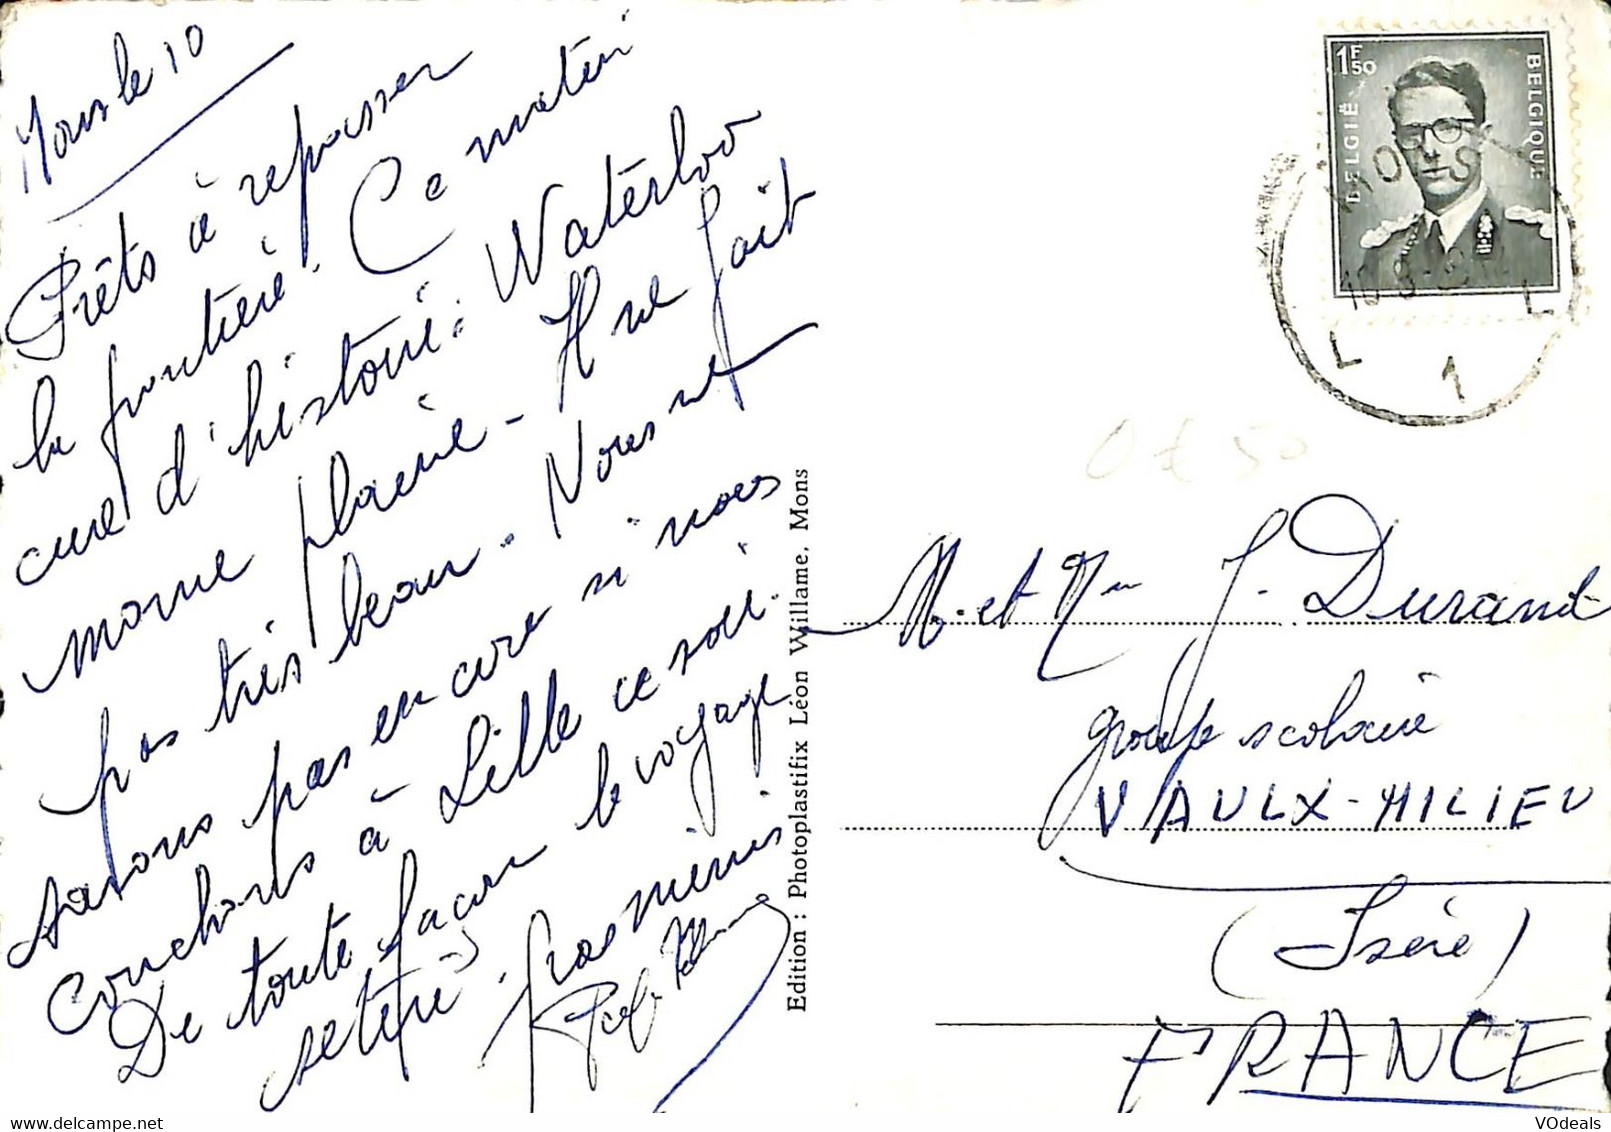 Mons le 10
Prêts à repasser
la frontière. Ce matin
cure d'histoire: Waterloo
morne plaine - Il ne fait
pas très beau. Nous ne
savons pas encore si nous
couchons à Lille ce soir.
De toute façon le voyage
se tire.
Edition : Photoplastifix Léon Willame, Mons
1F50
BELGIË
BELGIQUE
1
0 € 50
M. et Mme J. Durand
groupe scolaire
VAULX-MILIEU
(Isère)
FRANCE
VOdeals